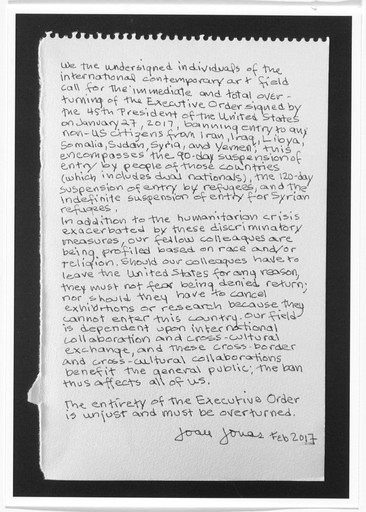 We the undersigned individuals of the
international contemporary art field
call for the immediate and total over-
turning of the Executive Order signed by
the 45th President of the United States
on January 27, 2017, banning entry to any
non-US citizens from Iran, Iraq, Libya,
Somalia, Sudan, Syria, and Yemen; this
encompasses the 90-day suspension of
entry by people of those countries
(which includes dual nationals), the 120-day
suspension of entry by refugees, and the
indefinite suspension of entry for Syrian
refugees.
In addition to the humanitarian crisis
exacerbated by these discriminatory
measures, our fellow colleagues are
being profiled based on race and/or
religion. Should our colleagues have to
leave the United States for any reason,
they must not fear being denied return;
nor should they have to cancel
exhibitions or research because they
cannot enter this country. Our field
is dependent upon international
collaboration and cross-cultural
exchange, and these cross-border
and cross-cultural collaborations
benefit the general public; the ban
thus affects all of us.
The entirety of the Executive Order
is unjust and must be overturned.
Joan Jonas Feb 2017